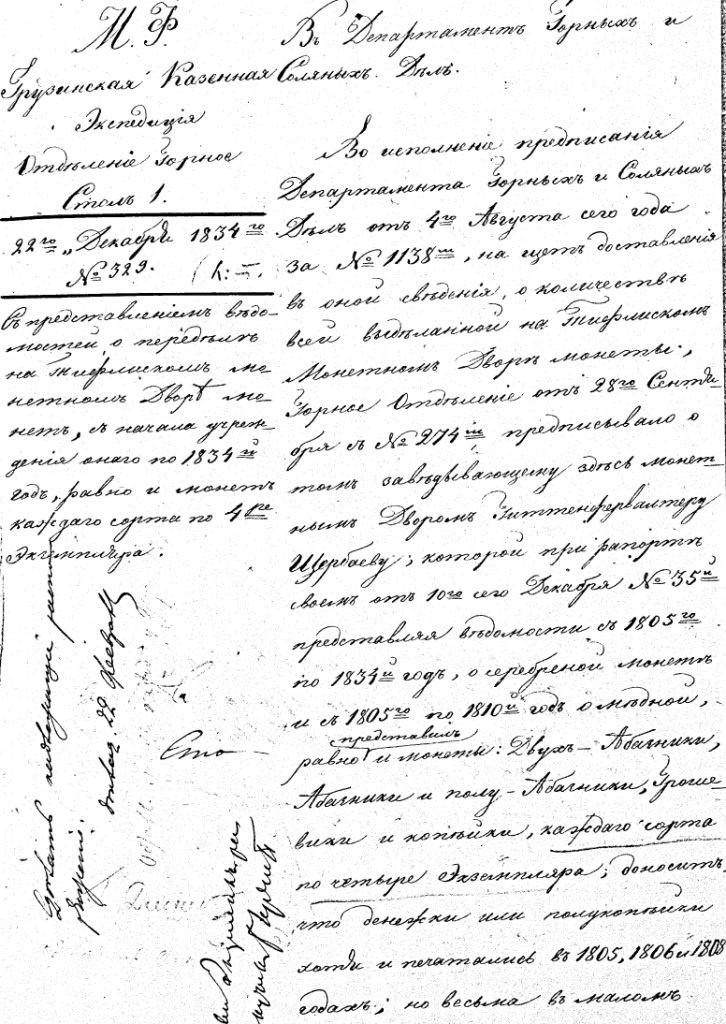 М. Ф.
Грузинская Казенная
Экспедиція
Отдѣленіе Горное
Столъ 1.
22го „Декабря 1834го
№ 329.
Съ представленіемъ вѣдо-
мостей о передѣлѣ
на Тифлискомъ мо-
нетномъ Дворѣ мо-
нетъ, съ начала учреж-
денія онаго по 1834й
годъ, равно и монетъ
каждаго сорта по 4ре
Экземпляра.
22 февраля
Въ Департаментъ Горныхъ и
Соляныхъ Дѣлъ.
Во исполненіе предписанія
Департамента Горныхъ и Соляныхъ
Дѣлъ отъ 4го Августа сего года
за № 1138мъ, на щетъ доставленія
въ оной свѣденія, о количествѣ
всей выдѣланной на Тифлискомъ
Монетномъ Дворѣ монеты;
Горное Отдѣленіе отъ 28го Сентя-
бря съ № 274мъ предписывало о
томъ завѣдывающему здѣсь монет-
нымъ Дворомъ Гиттенфервалтеру
Щербаеву; которой при рапортѣ
своемъ отъ 10го сего Декабря № 35й
представляя вѣдомости съ 1805го
по 1834й годъ, о серебреной монетѣ
и съ 1805го по 1810й годъ о мѣдной,
представилъ
равно и монеты: Двухъ-Абазники,
Абазники и полу-Абазники, Гроше-
вики и копѣйки, каждаго сорта
по четыре Экземпляра; доноситъ,
что денежки или полукопѣйки
хотя и печатались въ 1805, 1806 и 1808
годахъ; но весьма въ маломъ